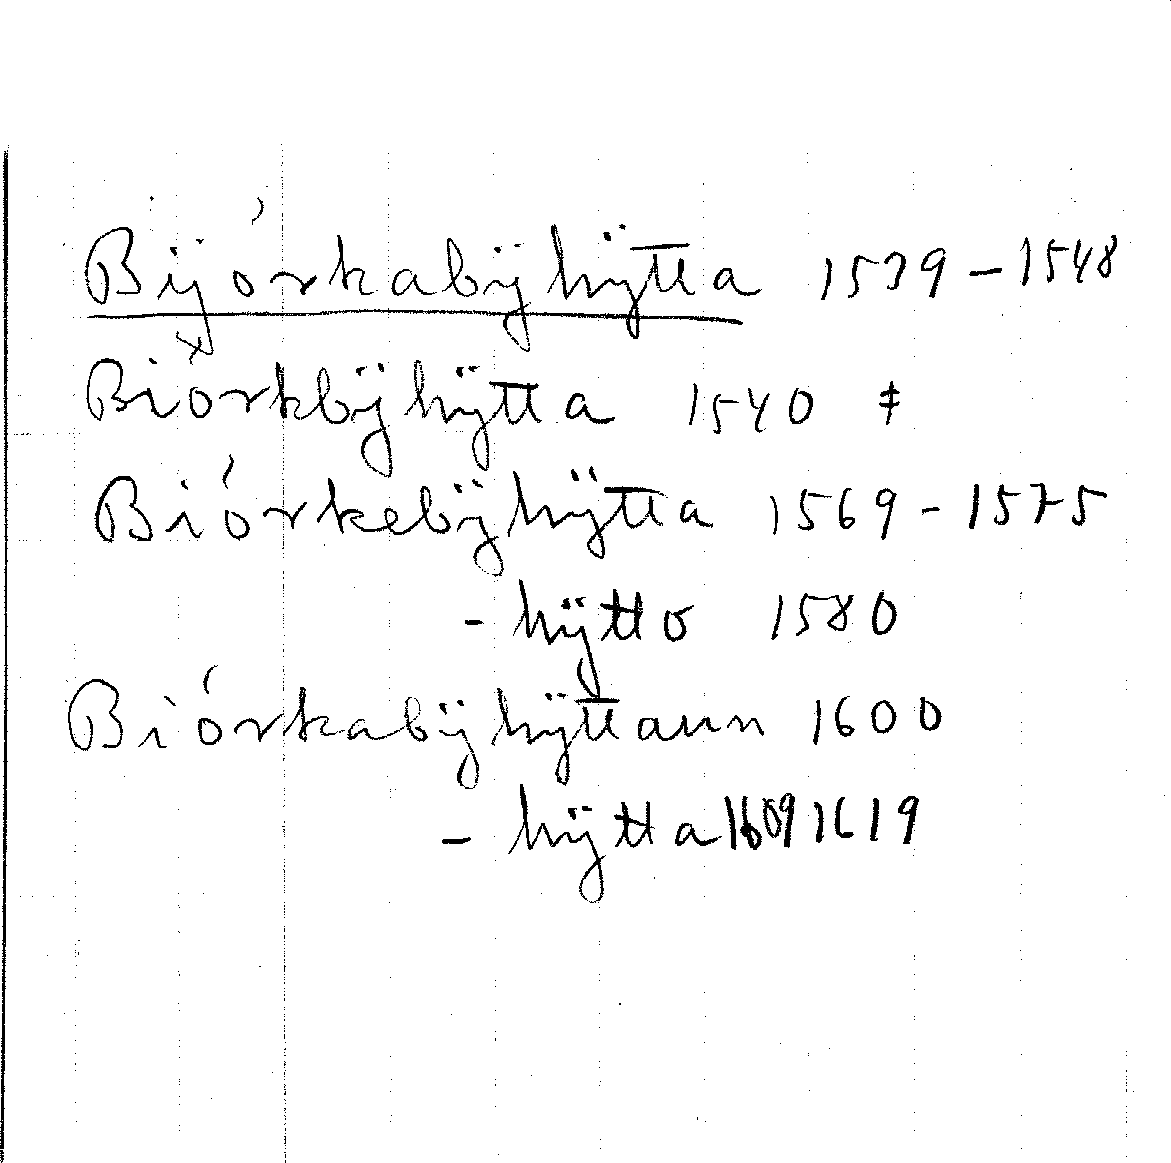 Bijórkabÿhÿtta 1539 – 1548
Biörkbÿhÿtta 1540 ‡
Biórkebÿhÿtta 1569 - 1575
- hÿtto 1580
Biórkabÿhÿttann 1600
- hÿtta 1609 1619